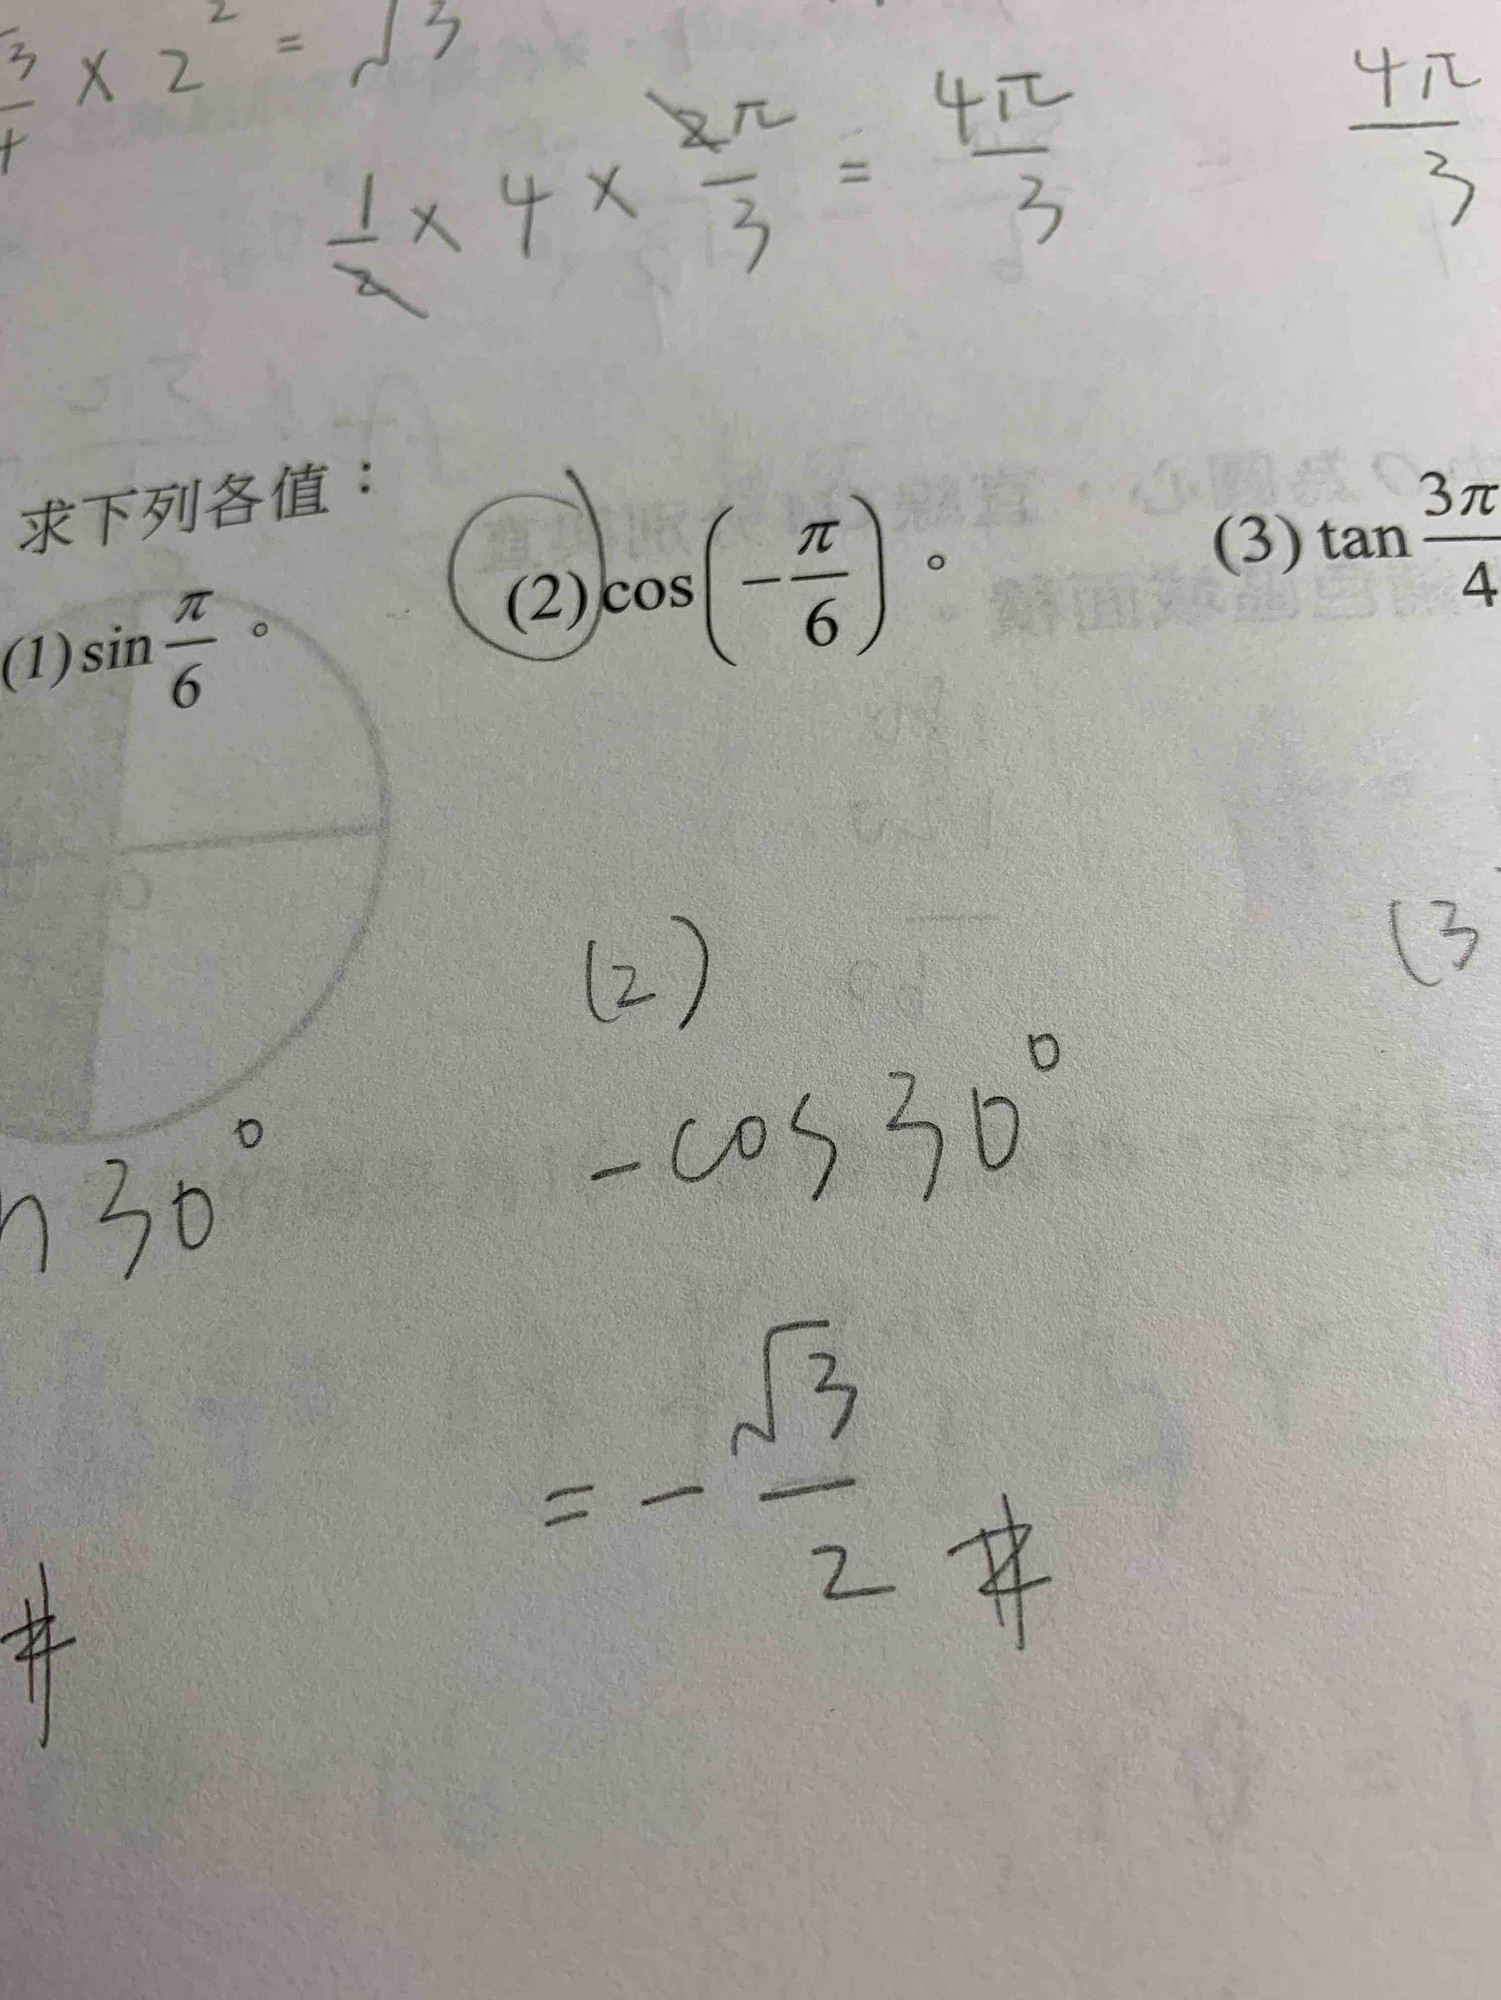 × 2² = √3
1/2 × 4 × 2π/3 = 4π/3
4π/3
求下列各值：
(1) sin π/6 。 (2) cos(-π/6) 。 (3) tan 3π/4
(2)
(3
30°
-cos 30°
= - √3/2 #
#